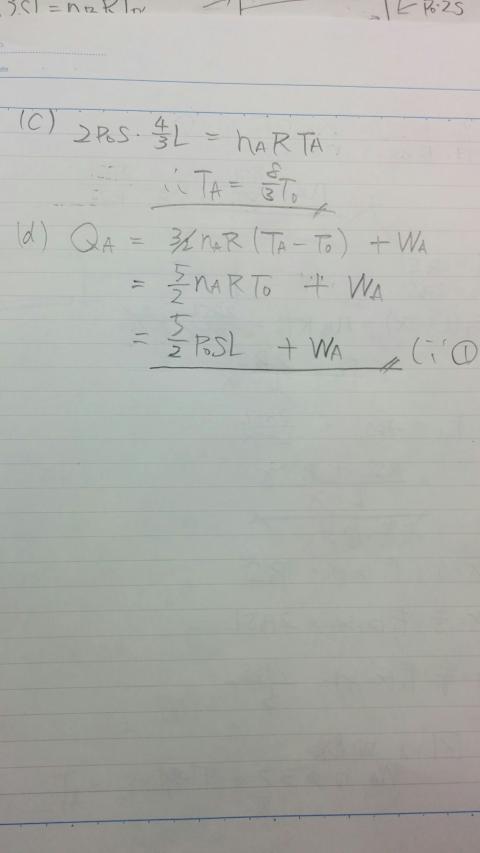 (C) 2P₀S · 4/3 L = nA R TA
∴ TA = 8/3 T₀
(d) QA = 3/2 nA R (TA − T₀) + WA
= 5/2 nA R T₀ + WA
= 5/2 P₀SL + WA (∵ ①